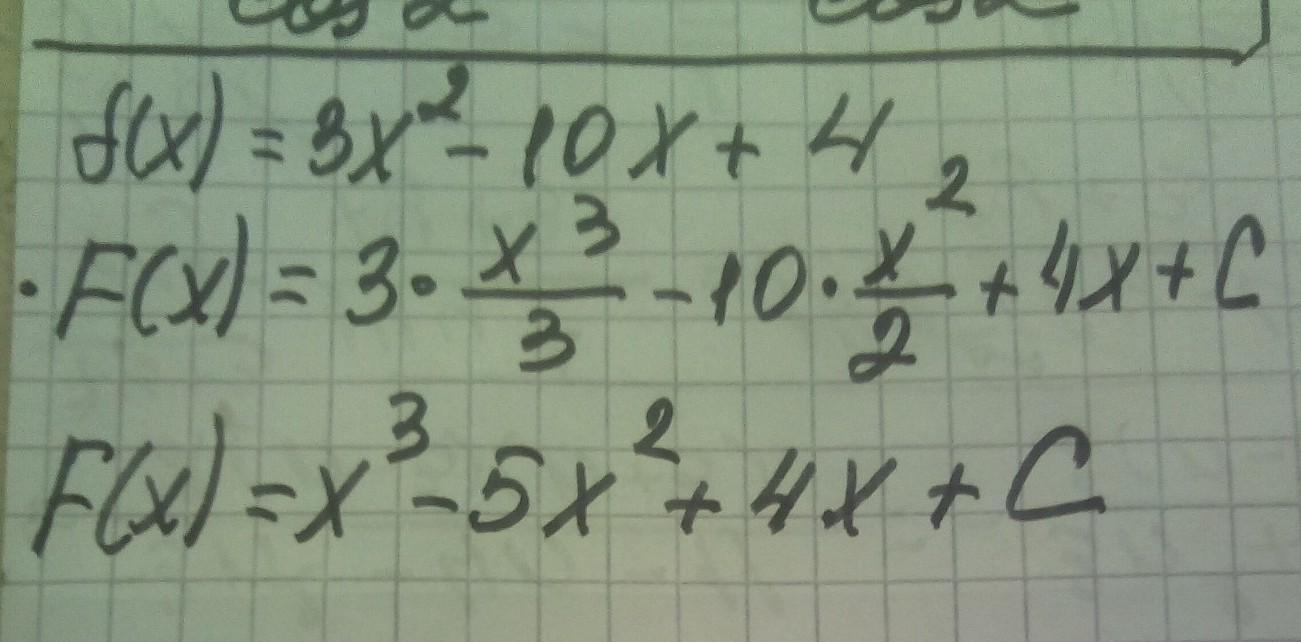 cos α cos α
f(x) = 3x² - 10x + 4
· F(x) = 3 · x³/3 - 10 · x²/2 + 4x + C
F(x) = x³ - 5x² + 4x + C